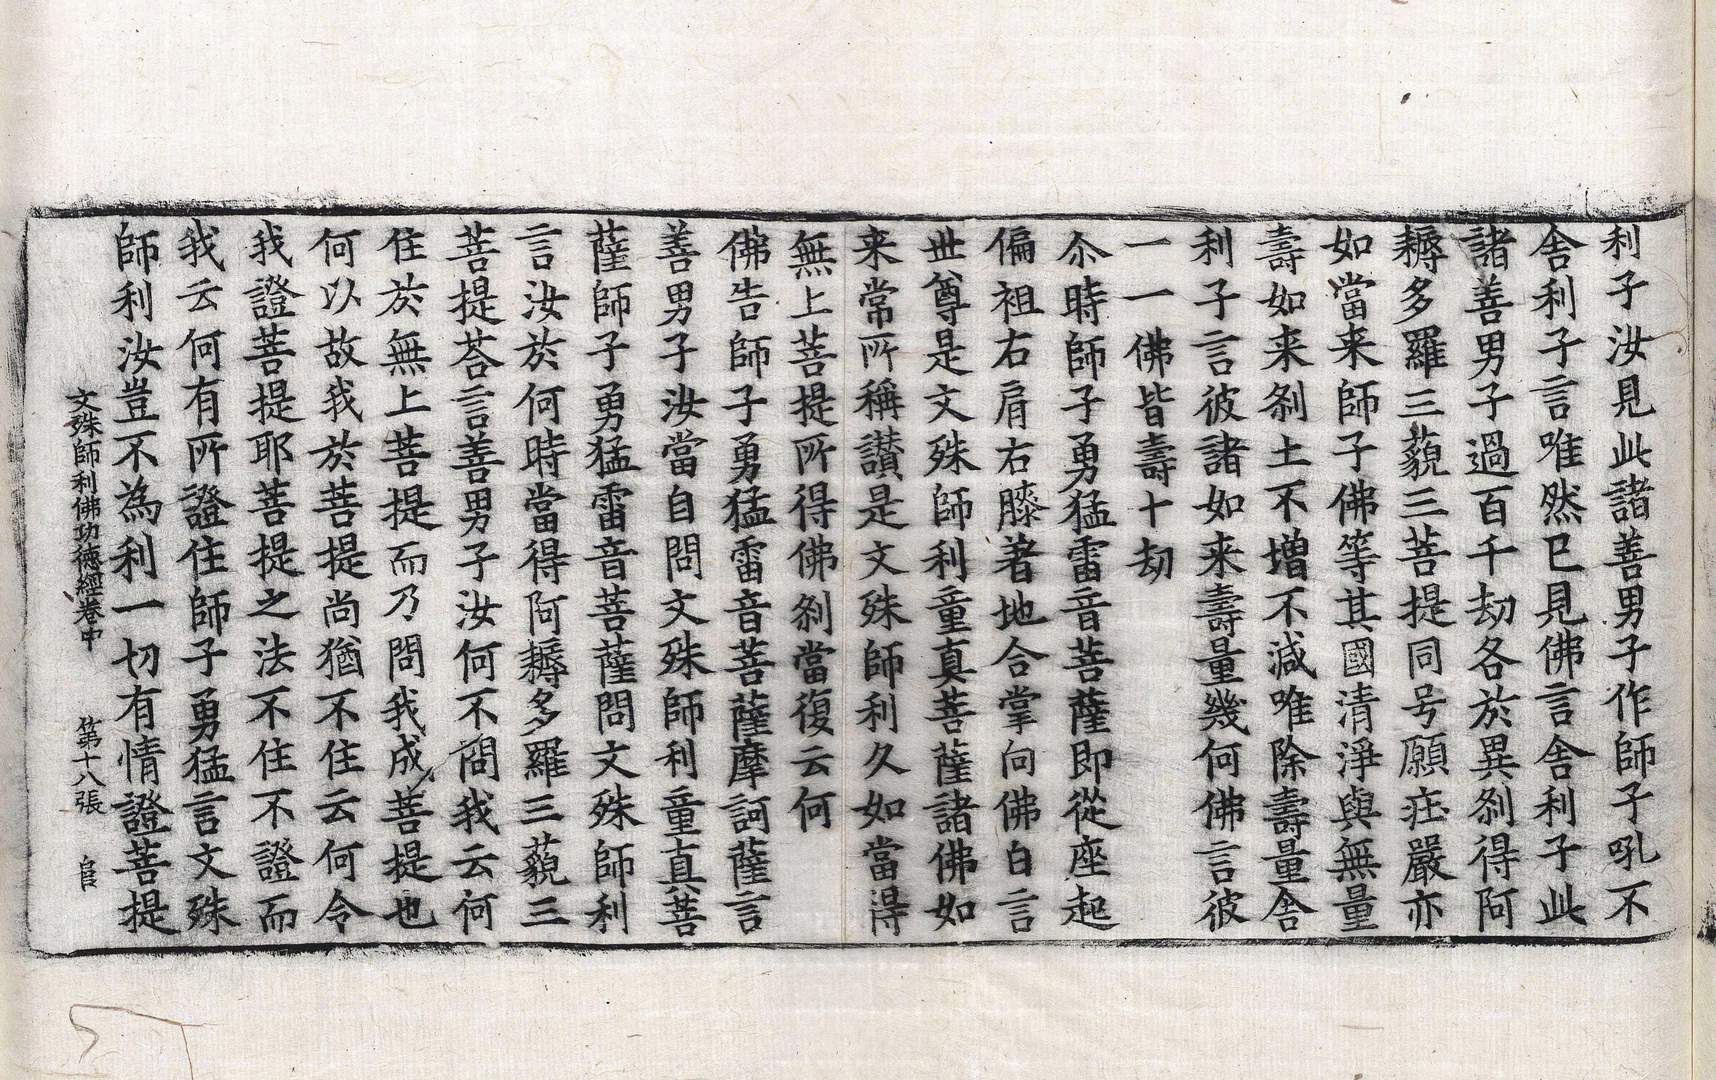 利子汝見此諸善男子作師子吼不
舎利子言唯然已見佛言舎利子此
諸善男子過百千劫各於異刹得阿
耨多羅三藐三菩提同号願疘嚴亦
如當来師子佛等其國清淨與無量
壽如来刹土不增不減唯除壽量舎
利子言彼諸如来壽量幾何佛言彼
一一佛皆壽十劫
尒時師子勇猛雷音菩薩即從座起
偏袒右肩右膝著地合掌向佛白言
世尊是文殊師利童真菩薩諸佛如
来常所稱讃是文殊師利久如當得
無上菩提所得佛刹當復云何
佛告師子勇猛雷音菩薩摩訶薩言
善男子汝當自問文殊師利童真菩
薩師子勇猛雷音菩薩問文殊師利
言汝於何時當得阿耨多羅三藐三
菩提荅言善男子汝何不問我云何
住於無上菩提而乃問我成菩提也
何以故我於菩提尚猶不住云何令
我證菩提耶菩提之法不住不證而
我云何有所證住師子勇猛言文殊
師利汝豈不為利一切有情證菩提
文殊師利佛功德經卷中 第十八張 官